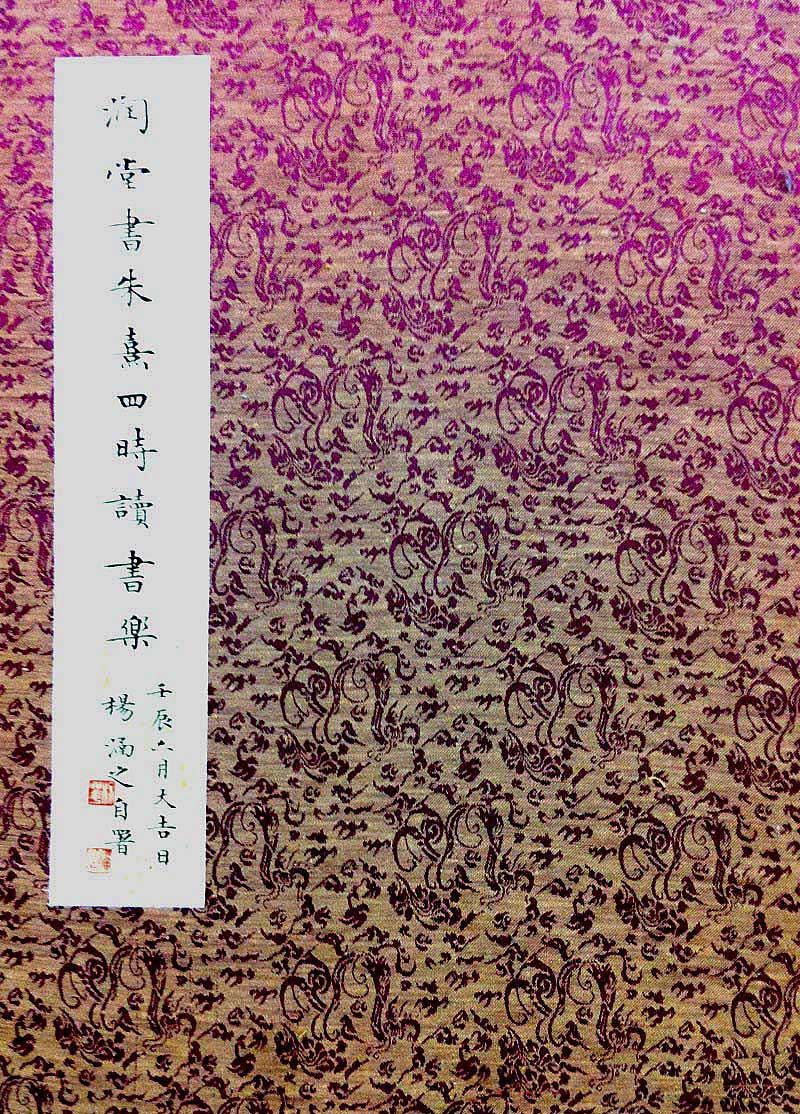 润堂書朱熹四時讀書樂
壬辰六月大吉日
楊涵之自署